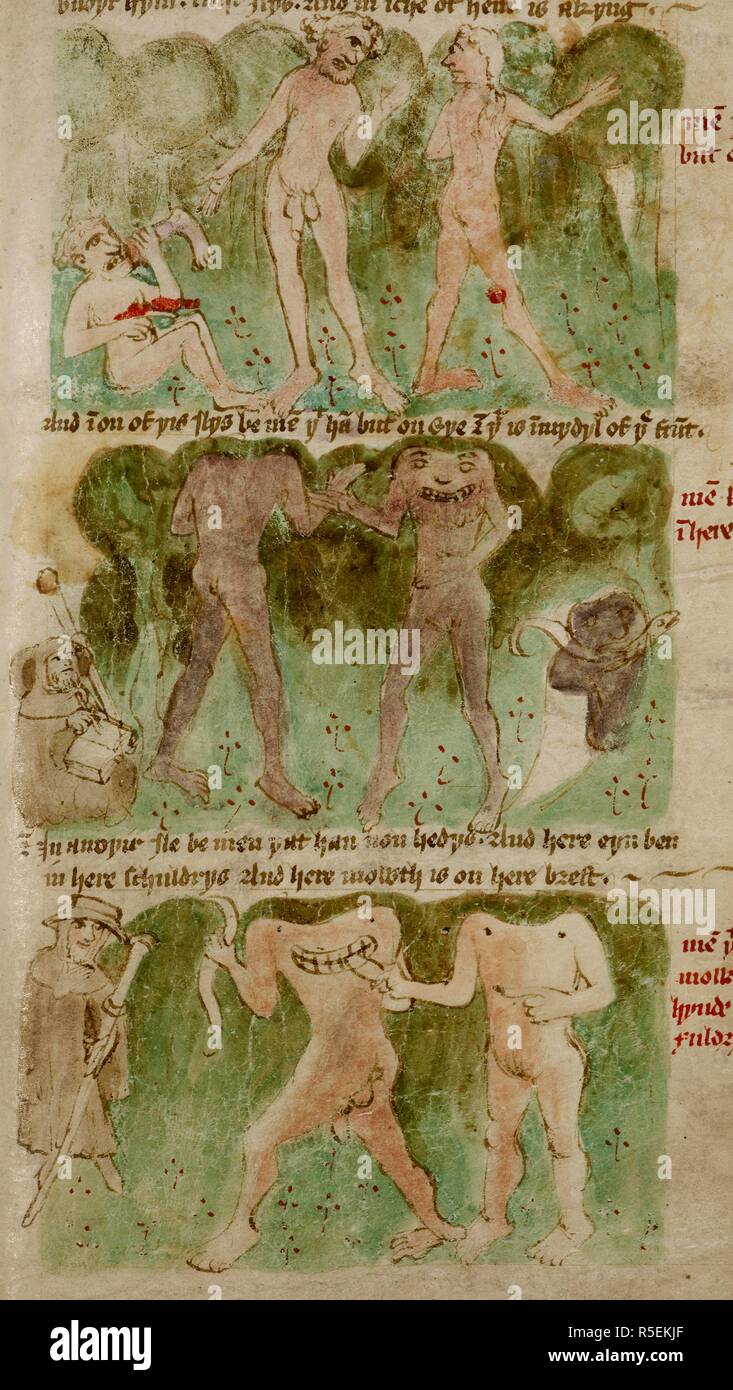 And in iche of hem is a kyng
mē
but
And ī on of yis ylys be mē yᵗ hā but on eye & yᵗ is ī mydyl of yᵉ frūt.
mē
ī here
In anoyir Ile be men yatt han non hedys. And here eyn ben
in here schuldrys And here mowth is on here brest.
mē
hynde
alamy
Image ID: R5EKJF
www.alamy.com